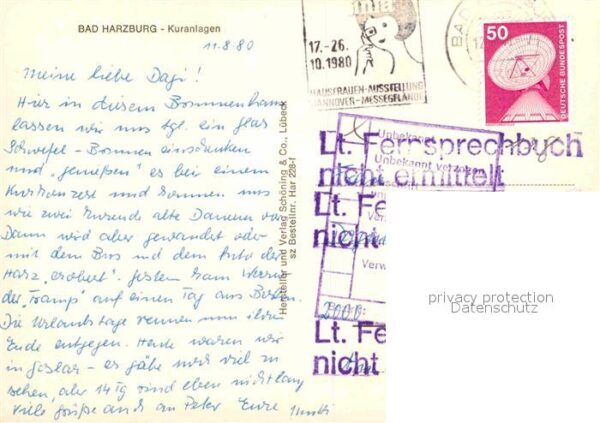 BAD HARZBURG - Kuranlagen
11.8.80
Meine liebe Dagi!
Hier in diesem Brunnenhaus
lassen wir uns tgl. ein Glas
Schwefel-Brunnen einschenken
und "genießen" es bei einem
Kurkonzert und kommen uns
wie zwei kurende alte Damen vor
Dann wird aber gewandert oder
mit dem Bus und dem Auto der
Harz "erobert". Gestern kam
der "Tramp" auf einen Tag aus
Die Urlaubstage rennen nun ihrem
Ende entgegen. Heute waren wir
in Goslar - es gäbe noch viel zu
sehen, aber 14 Tg sind eben nicht lang
Viele Grüße auch an Peter Eure
Hersteller und Verlag Schöning & Co., Lübeck
sz Bestellnr. Har 228-f
17.-26.
10.1980
HAUSFRAUEN-AUSSTELLUNG
HANNOVER-MESSEGELÄNDE
BA
50
DEUTSCHE BUNDESPOST
Unbekannt
Unbekannt verzogen
Lt. Fernsprechbuch
nicht ermittelt
Lt. Fe
nicht
Verw
Lt. Fe
nicht
privacy protection
Datenschutz